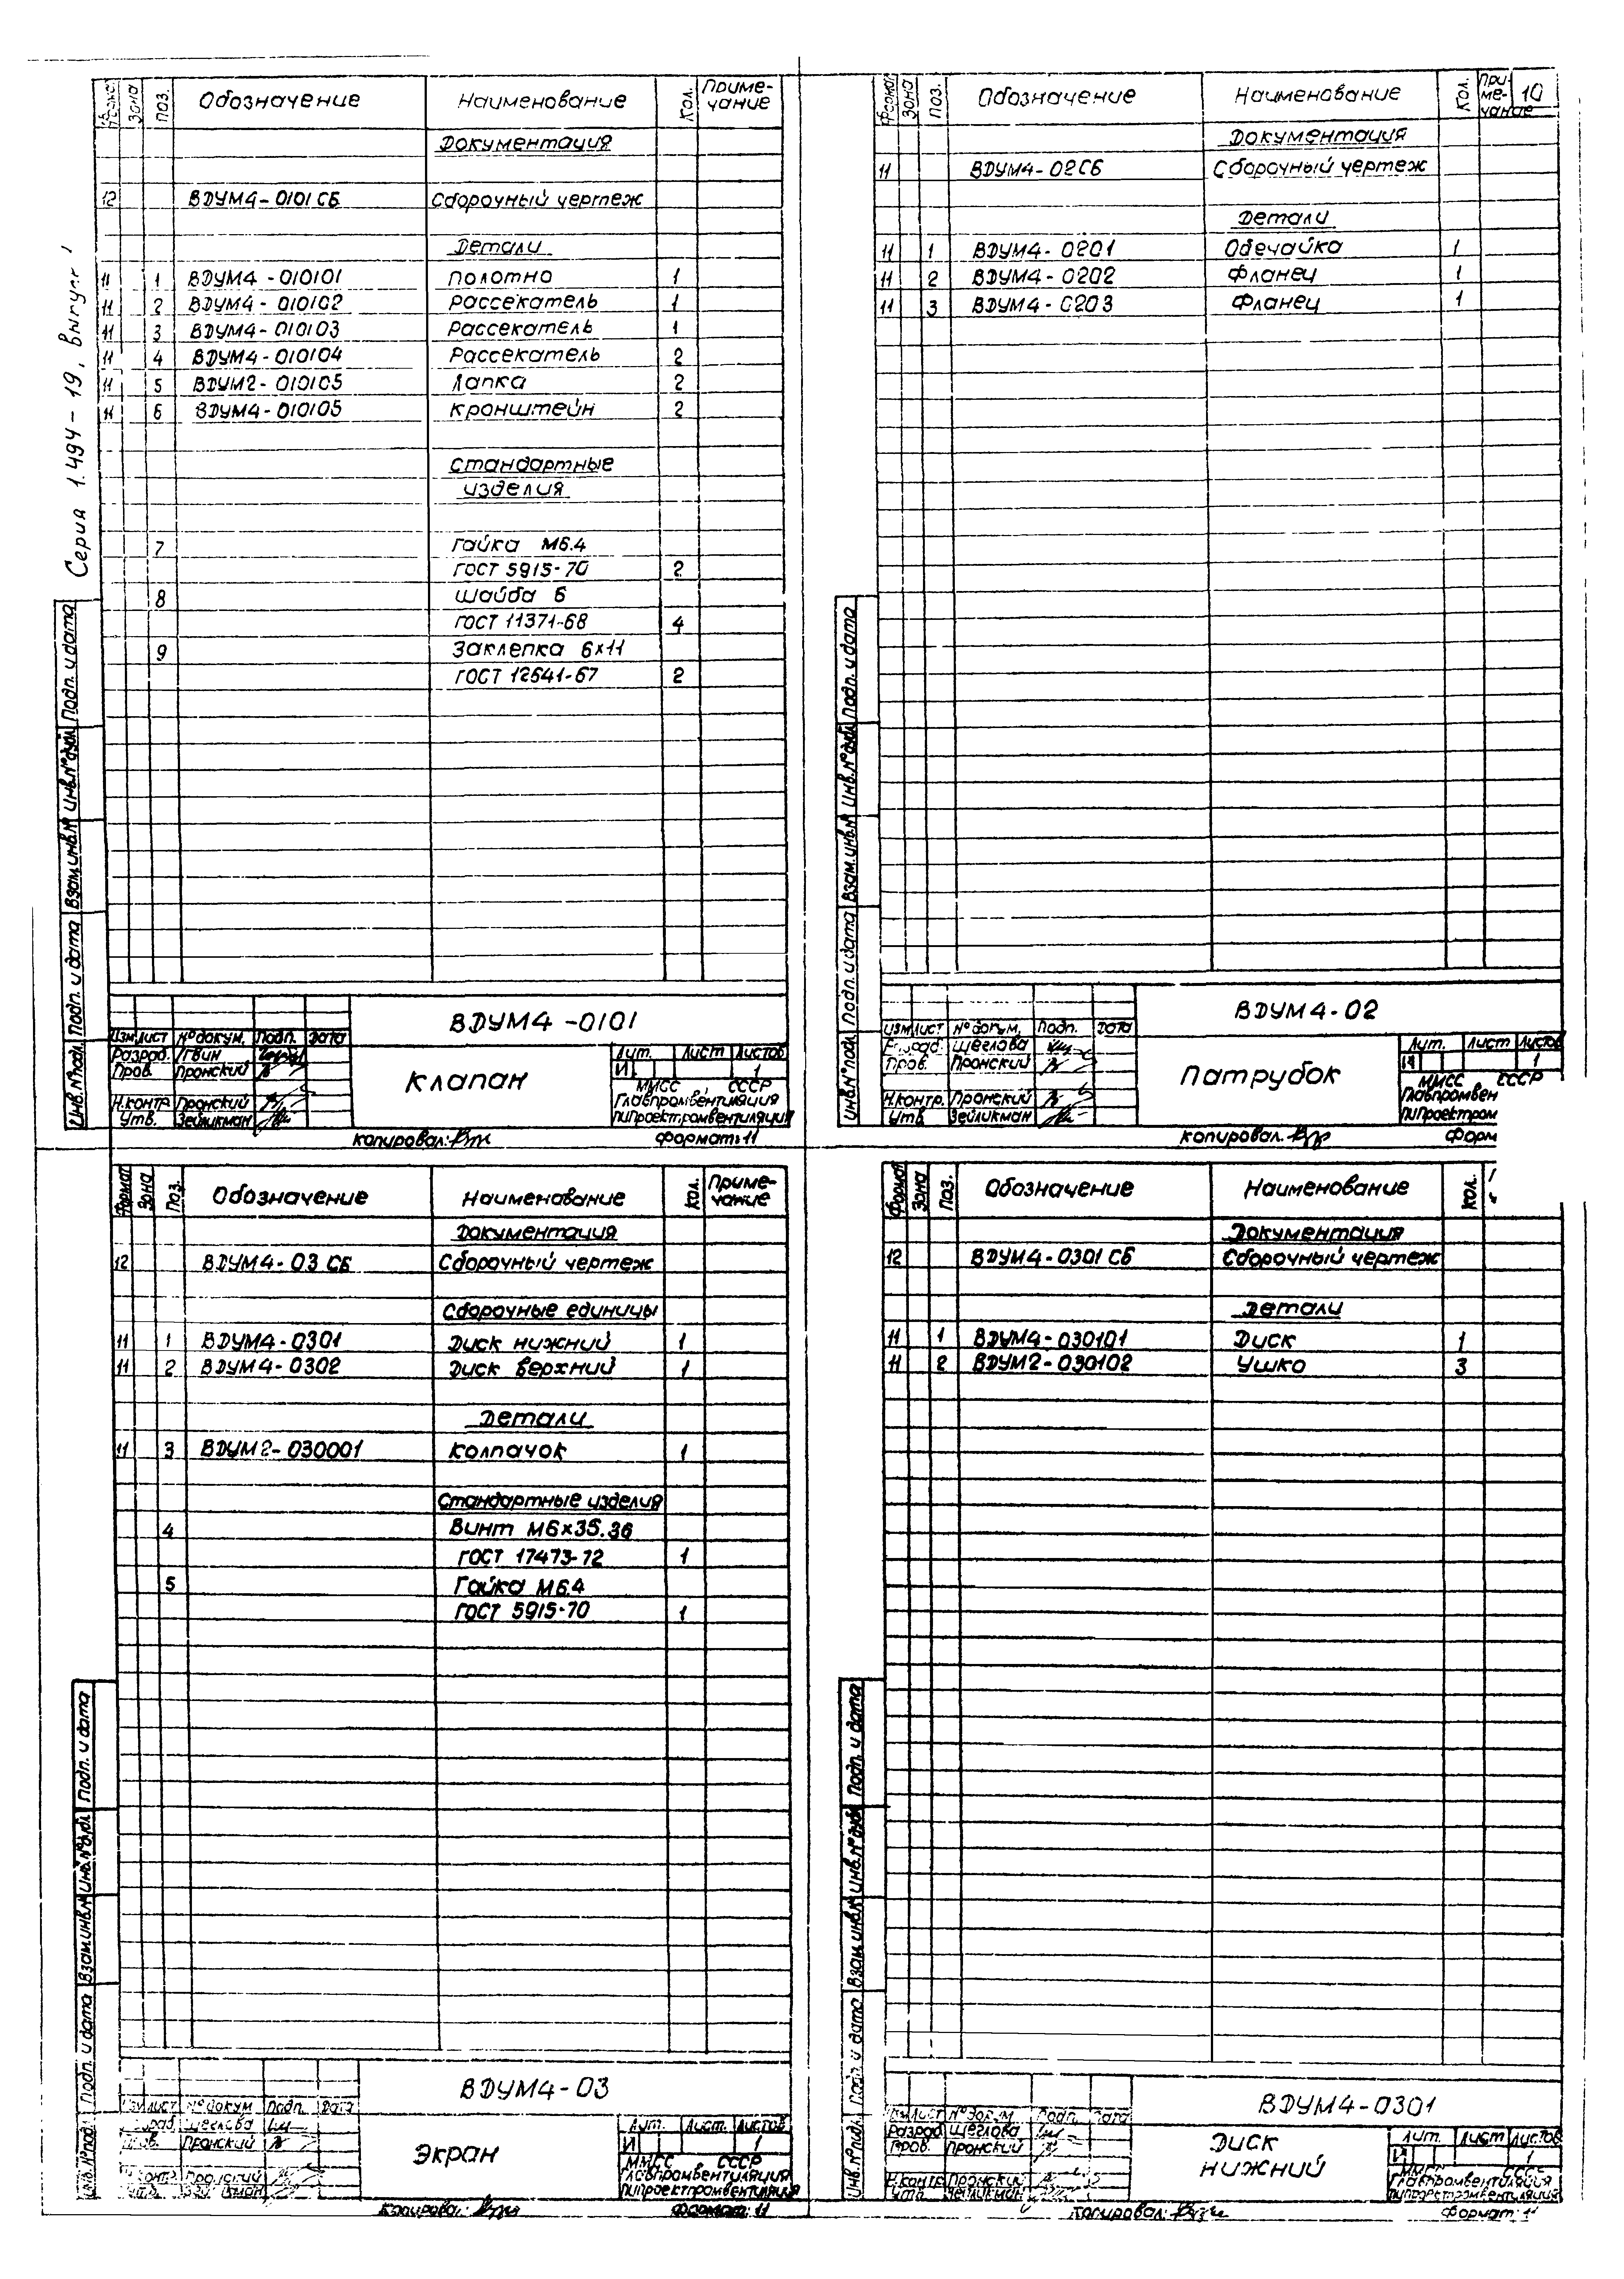 Серия 1.494-19, выпуск 1
Формат Зона Поз. Обозначение Наименование Кол. Приме-чание
Документация
12 ВДУМ4-0101 СБ Сборочный чертеж
Детали
11 1 ВДУМ4-010101 Полотно 1
11 2 ВДУМ4-010102 Рассекатель 1
11 3 ВДУМ4-010103 Рассекатель 1
11 4 ВДУМ4-010104 Рассекатель 2
11 5 ВДУМ2-010105 Лапка 2
11 6 ВДУМ4-010105 Кронштейн 2
Стандартные
изделия
7 Гайка М6.4
ГОСТ 5915-70 2
8 Шайба 6
ГОСТ 11371-68 4
9 Заклепка 6х11
ГОСТ 12641-67 2
Инв.№подл. Подп. и дата Взам.инв.№ Инв.№дубл. Подп. и дата
ВДУМ4-0101
Изм. Лист №докум. Подп. Дата
Разраб.
Пров. Пронский
Н.контр. Пронский
Утв. Зейликман
Клапан
Лит. Лист Листов
И 1
ММСС СССР
Главпромвентиляция
Гипроектпромвентиляция
Копировал: Формат: 11
10
Формат Зона Поз. Обозначение Наименование Кол. При-ме-чание
Документация
11 ВДУМ4-02СБ Сборочный чертеж
Детали
11 1 ВДУМ4-0201 Обечайка 1
11 2 ВДУМ4-0202 Фланец 1
11 3 ВДУМ4-0203 Фланец 1
Инв.№подл. Подп. и дата Взам.инв.№ Инв.№дубл. Подп. и дата
ВДУМ4-02
Изм. Лист №докум. Подп. Дата
Разраб. Щеглова
Пров. Пронский
Н.контр. Пронский
Утв. Зейликман
Патрубок
Лит. Лист Листов
И 1
ММСС СССР
Главпромвен
Гипроектпром
Копировал: Форм
Формат Зона Поз. Обозначение Наименование Кол. Приме-чание
Документация
12 ВДУМ4-03 СБ Сборочный чертеж
Сборочные единицы
11 1 ВДУМ4-0301 Диск нижний 1
11 2 ВДУМ4-0302 Диск верхний 1
Детали
11 3 ВДУМ2-030001 Колпачок 1
Стандартные изделия
4 Винт М6х35.36
ГОСТ 17473-72 1
5 Гайка М6.4
ГОСТ 5915-70 1
Инв.№подл. Подп. и дата Взам.инв.№ Инв.№дубл. Подп. и дата
ВДУМ4-03
Изм. Лист №докум Подп. Дата
Разраб. Щеглова
Пров. Пронский
Н.контр. Пронский
Утв.
Экран
Лит. Лист. Листов
И 1
ММСС СССР
Главпромвентиляция
Гипроектпромвентиляция
Копировал: Формат: 11
Формат Зона Поз. Обозначение Наименование Кол.
Документация
12 ВДУМ4-0301 СБ Сборочный чертеж
Детали
11 1 ВДУМ4-030101 Диск 1
11 2 ВДУМ2-030102 Ушко 3
Инв.№подл. Подп. и дата Взам.инв.№ Инв.№дубл. Подп. и дата
ВДУМ4-0301
Изм. Лист №докум Подп. Дата
Разраб. Щеглова
Пров. Пронский
Н.контр. Пронский
Утв. Зейликман
Диск
нижний
Лит. Лист Листов
И 1
ММСС СССР
Главпромвентиляция
Гипроектпромвентиляция
Копировал: Формат: 11